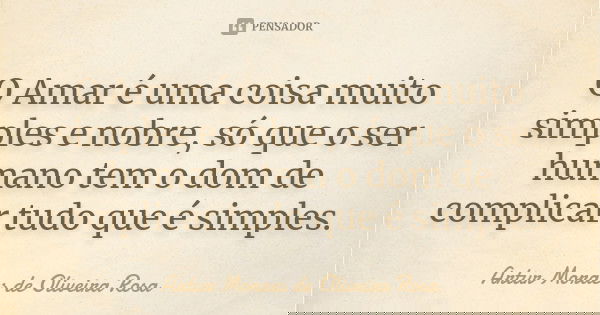 PENSADOR
O Amar é uma coisa muito
simples e nobre, só que o ser
humano tem o dom de
complicar tudo que é simples.
Artur Moraes de Oliveira Rosa